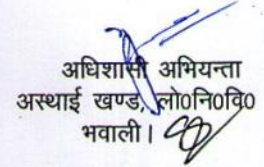 अधिशासी अभियन्ता
अस्थाई खण्ड, लो०नि०वि०
भवाली।